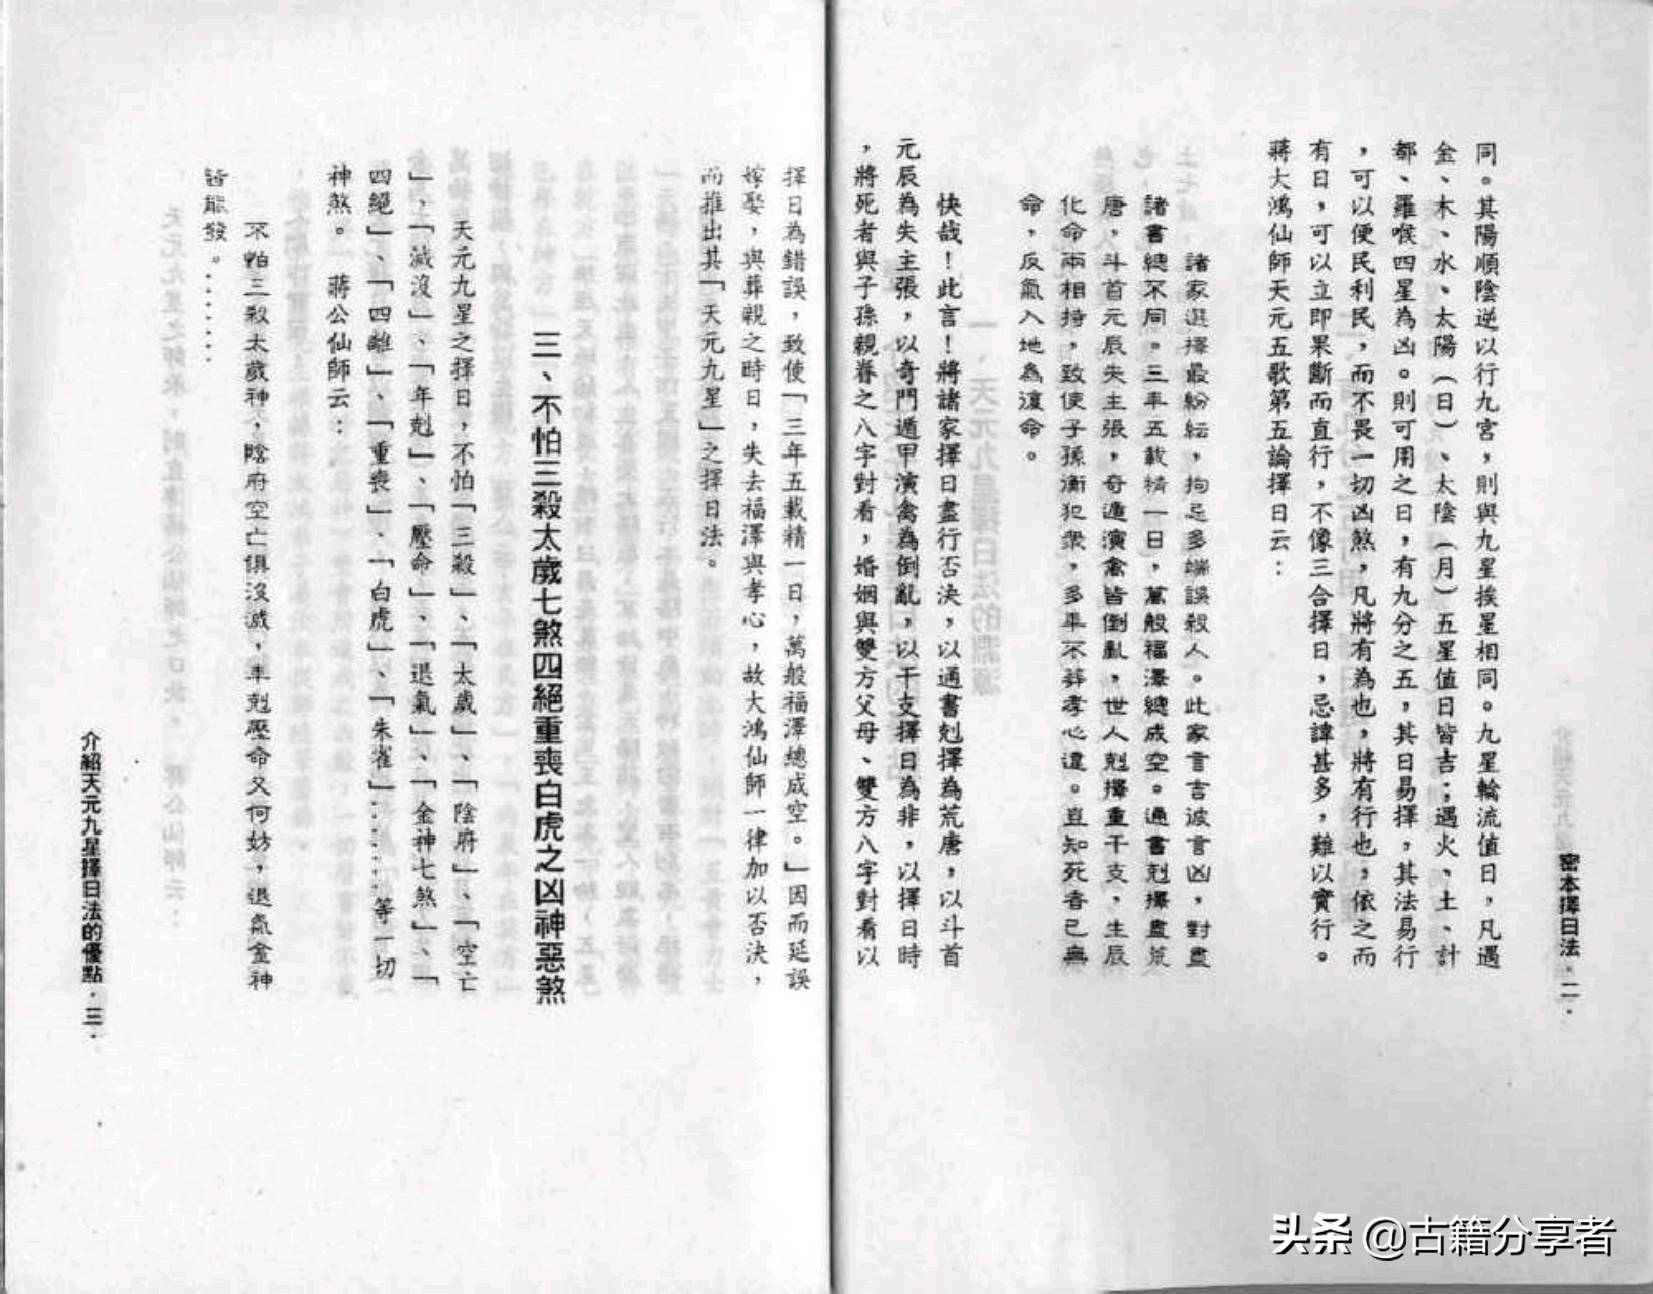 密本擇日法．二．
同。其陽順陰逆以行九宮，則與九星挨星相同。九星輪流值日，凡遇
金、木、水、太陽（日）、太陰（月）五星值日皆吉；遇火、土、計
都、羅喉四星為凶。則可用之日，有九分之五，其日易擇，其法易行
，可以便民利民，而不畏一切凶煞，凡將有為也，將有行也，依之而
有日，可以立即果斷而直行，不像三合擇日，忌諱甚多，難以實行。
蔣大鴻仙師天元五歌第五論擇日云：
諸家選擇最紛紜，拘忌多端誤殺人。此家言吉彼言凶，對盡
諸書總不同。三年五載精一日，萬般福澤總成空。通書剋擇盡荒
唐，斗首元辰失主張，奇遁演禽皆倒亂，世人剋擇重干支，生辰
化命兩相持，致使子孫衝犯衆，多年不葬孝心違。豈知死者已無
命，反氣入地為復命。
快哉！此言！將諸家擇日盡行否決，以通書剋擇為荒唐，以斗首
元辰為失主張，以奇門遁甲演禽為倒亂，以干支擇日為非，以擇日時
，將死者與子孫親眷之八字對看，婚姻與雙方父母、雙方八字對看以
擇日為錯誤，致使「三年五載精一日，萬般福澤總成空。」因而延誤
嫁娶，與葬親之時日，失去福澤與孝心，故大鴻仙師一律加以否決，
而推出其「天元九星」之擇日法。
三、不怕三殺太歲七煞四絕重喪白虎之凶神惡煞
天元九星之擇日，不怕「三殺」、「太歲」、「陰府」、「空亡
」，「滅沒」、「年剋」、「壓命」、「退氣」、「金神七煞」、「
四絕」、「四離」、「重喪」、「白虎」、「朱雀」………等一切
神煞。蔣公仙師云：
不怕三殺太歲神，陰府空亡俱沒滅，年剋壓命又何妨，退氣金神
皆能發。………
介紹天元九星擇日法的優點．三．
头条 @古籍分享者